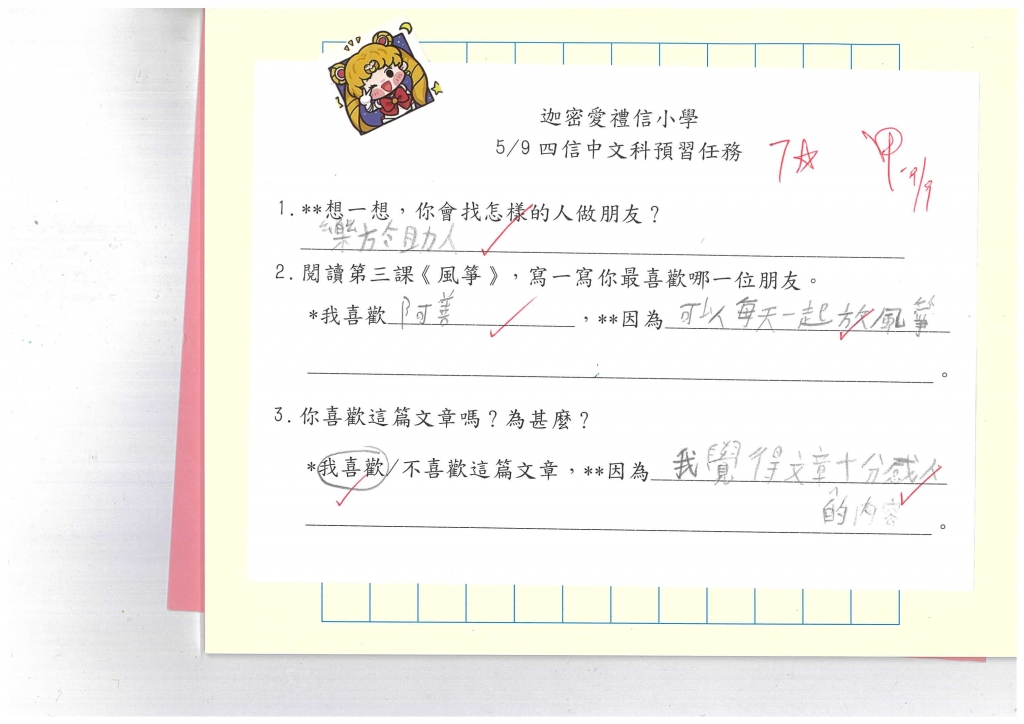 迦密愛禮信小學
5/9 四信中文科預習任務 7☆ 甲- 9/9
1. **想一想，你會找怎樣的人做朋友？
樂於助人
2. 閱讀第三課《風箏》，寫一寫你最喜歡哪一位朋友。
*我喜歡阿善，**因為可以每天一起放風箏
。
3. 你喜歡這篇文章嗎？為甚麼？
*我喜歡/不喜歡這篇文章，**因為我覺得文章十分感人
的內容。